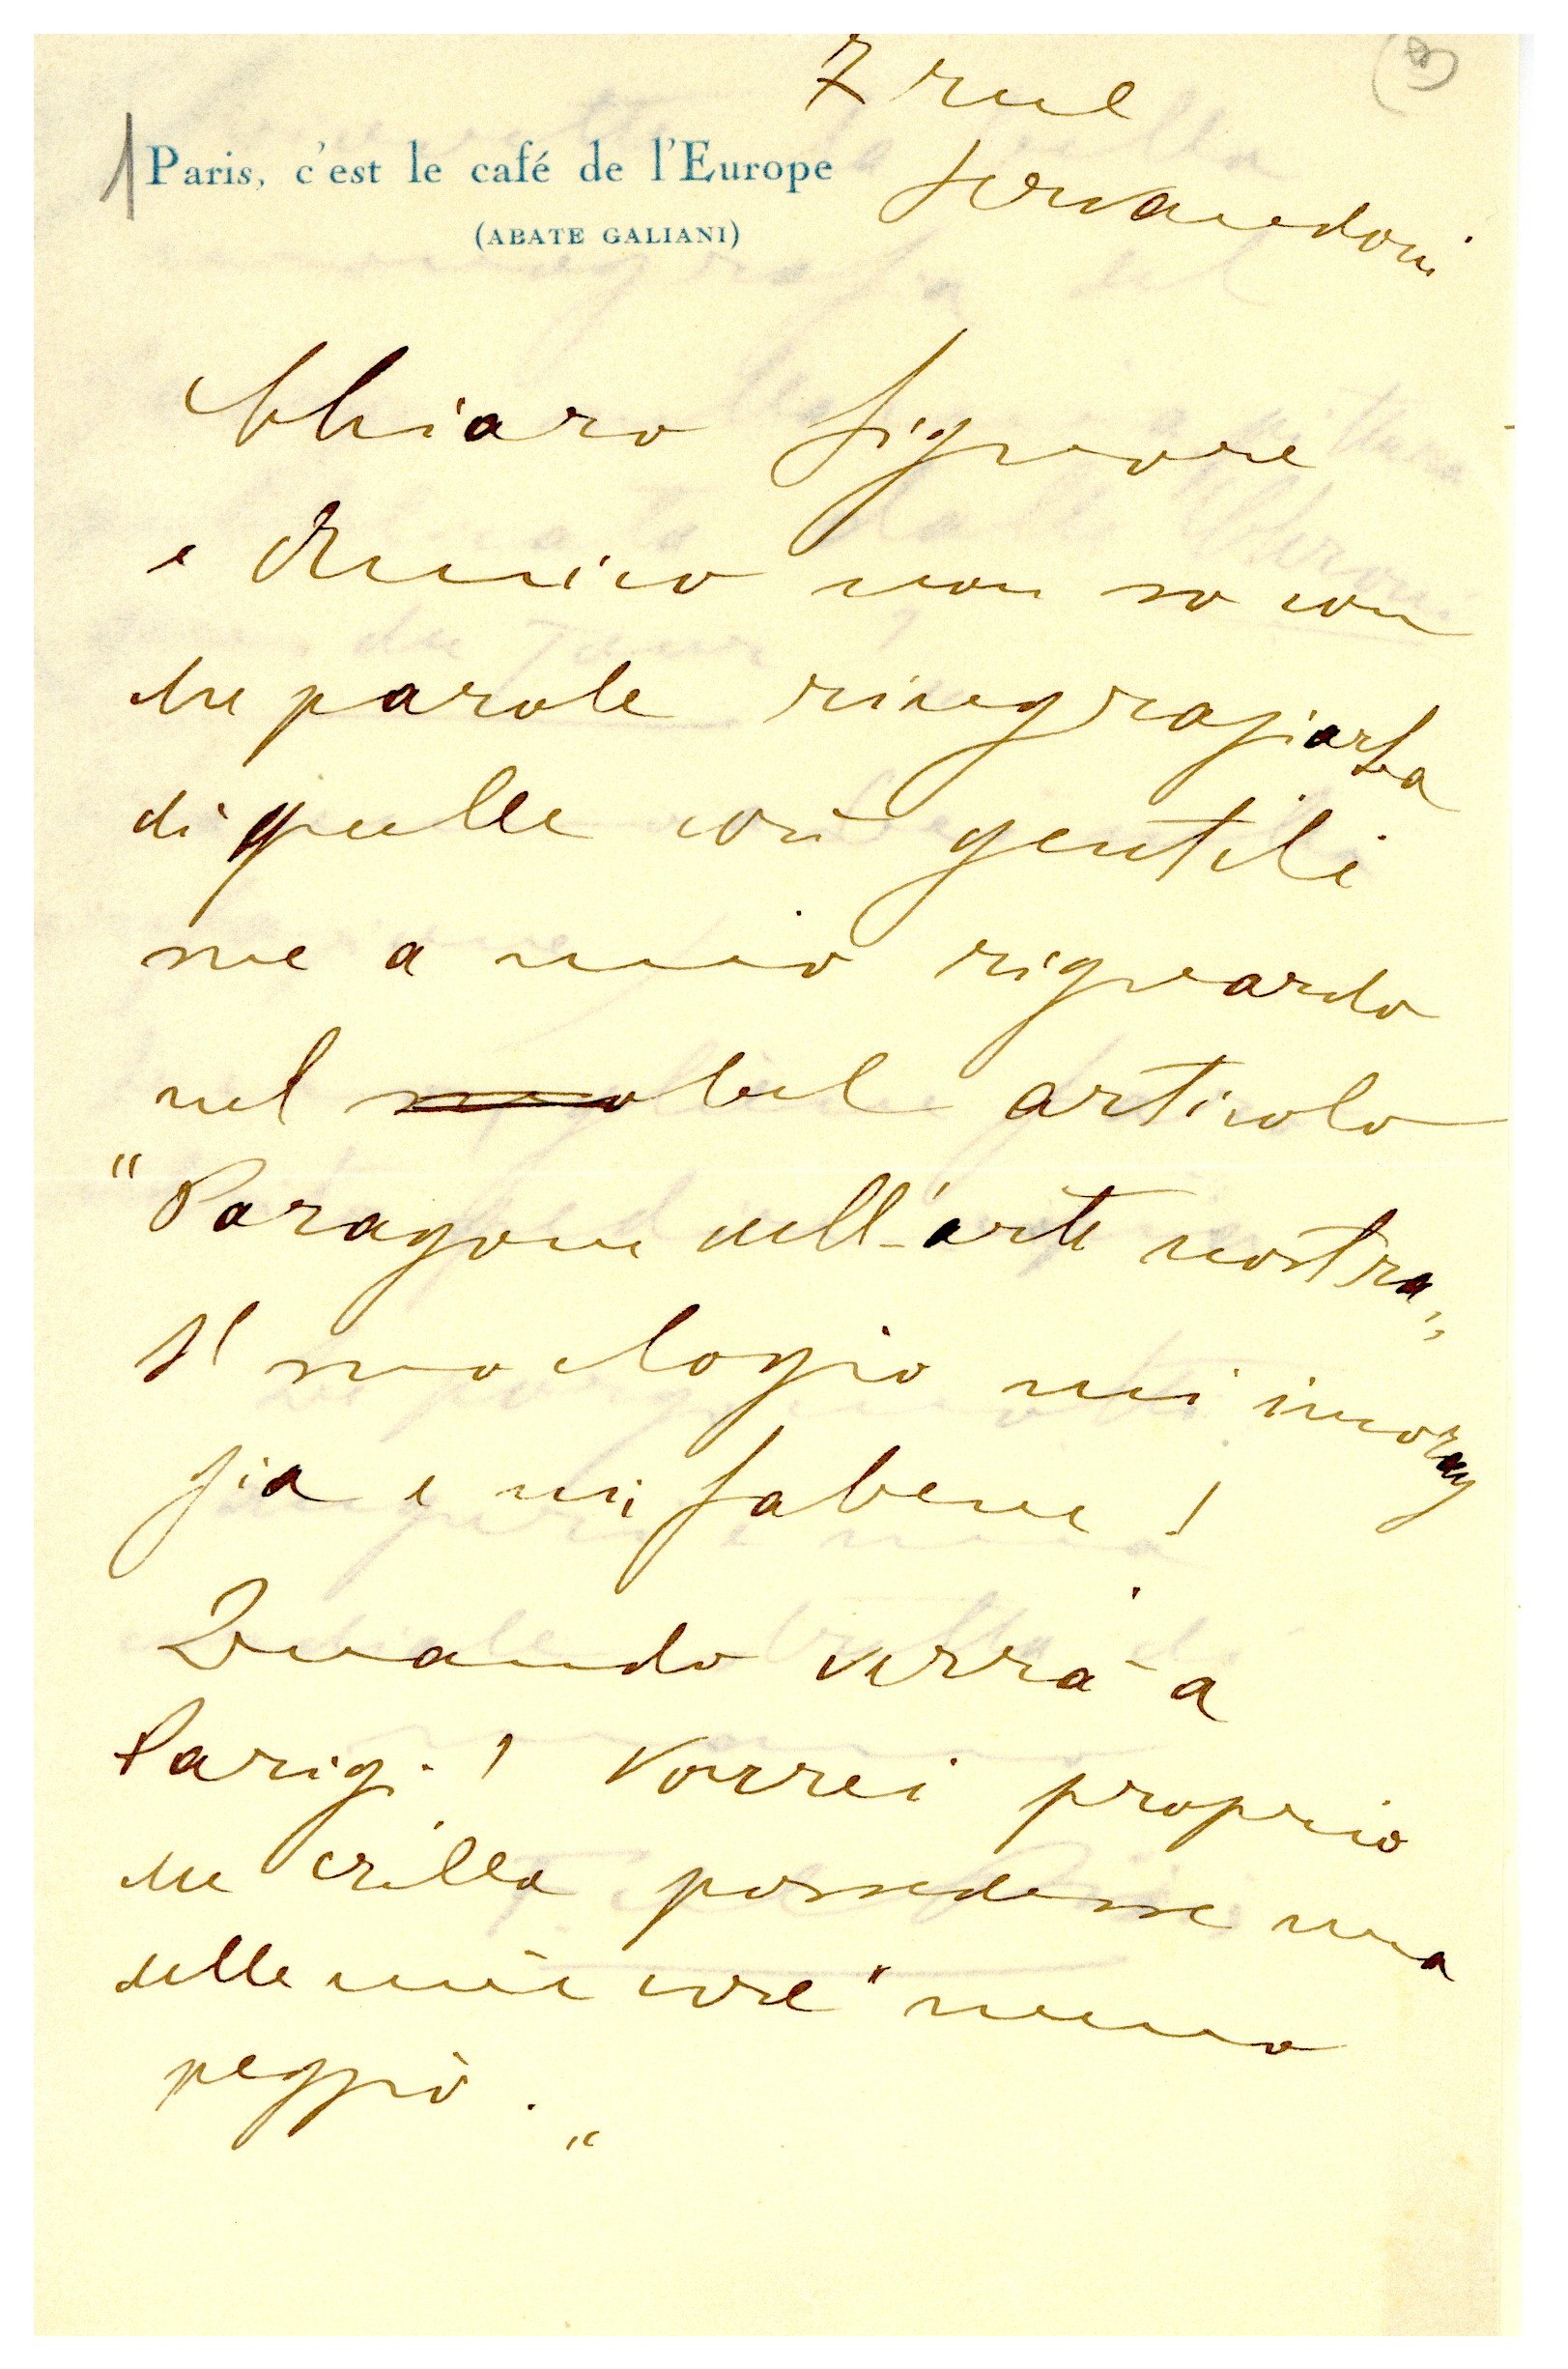 7 rue
Servandoni
1 Paris, c'est le café de l'Europe
(ABATE GALIANI)
Chiaro Signore
e Amico non so con
che parole ringraziarLa
di quelle così gentili
sue a mio riguardo
nel suo bel articolo
"Paragone dell'arte nostra"
Il suo elogio mi incorag
gia e mi fa bene!
Quando verrà a
Parigi! Vorrei proprio
che Ella possedesse una
delle mie cose "meno
peggio."